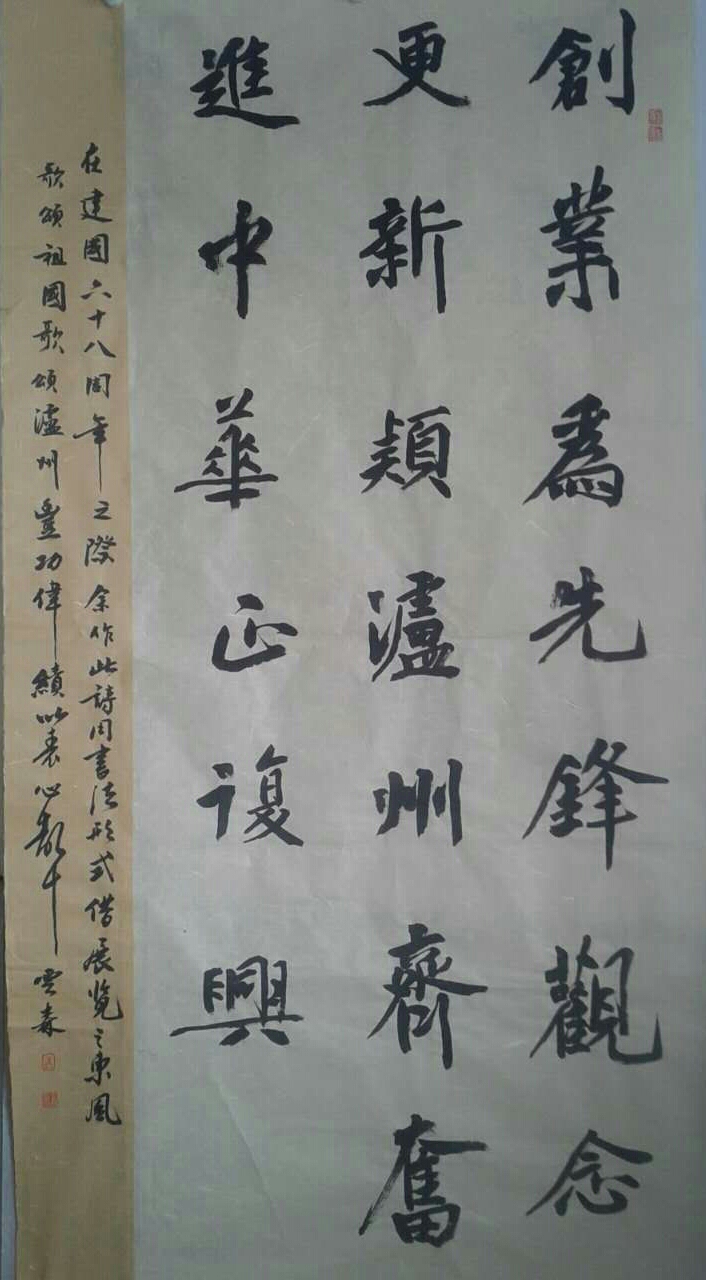 創業為先鋒觀念
更新穎瀘州齊奮
進中華正復興
在建國六十八周年之際余作此詩用書法形式借展览之東風
歌頌祖國歌頌瀘州豊功偉績以表心
雲森